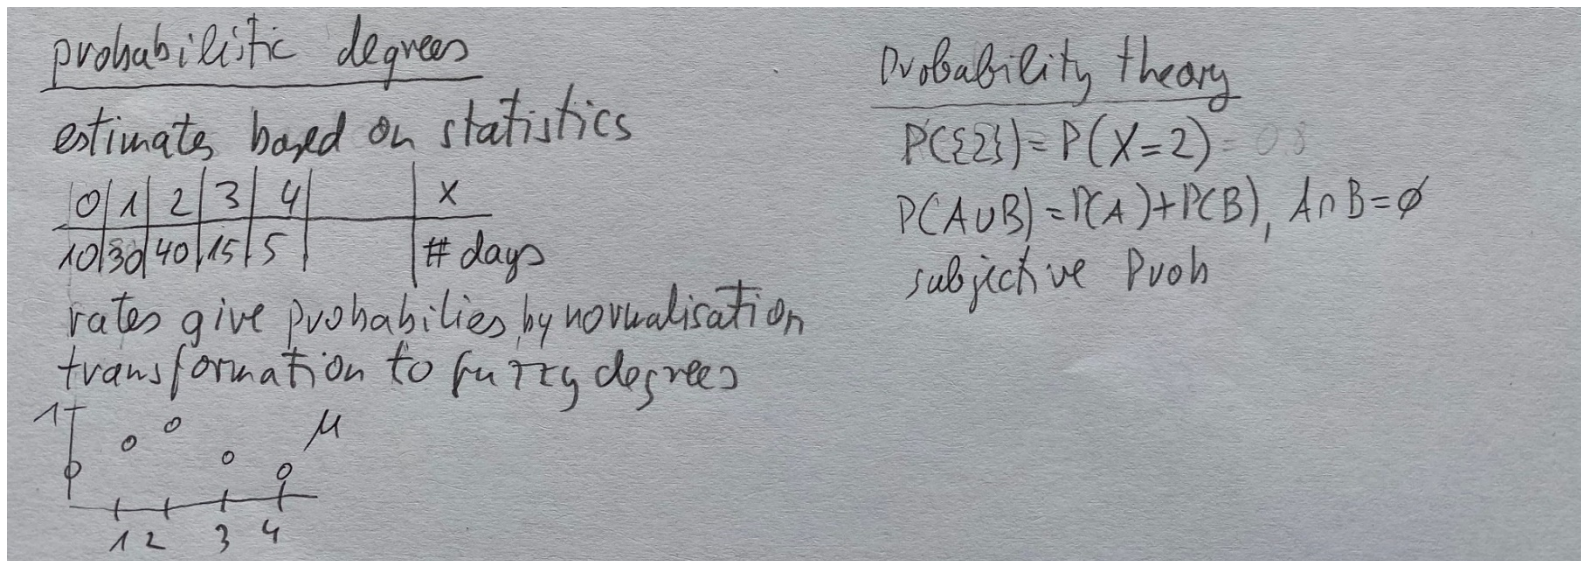 probabilistic degrees
estimates based on statistics
0 1 2 3 4 X
10 30 40 15 5 # days
rates give probabilies by normalisation
transformation to fuzzy degrees
1 μ
1 2 3 4
Probability theory
P({2}) = P(X=2) = 0.8
P(A∪B) = P(A)+P(B), A∩B=∅
subjective Prob